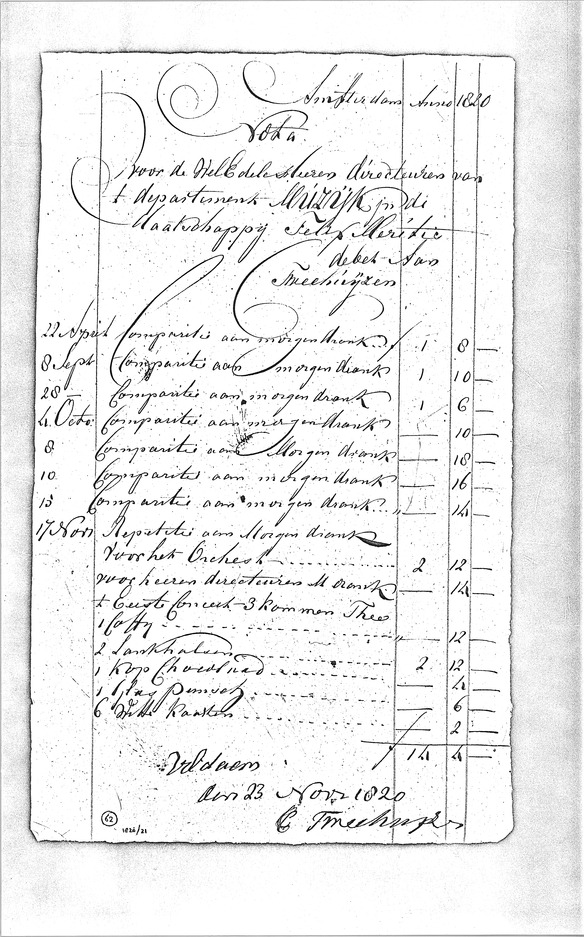 Amsterdam Anno 1820
Nota
voor de WelEdele Heeren directeuren van
t departement MUZIJK in di
Maatschappij Felix Meritis
debet Aan
Tweehuijzen
22 April Comparitie aan morgendrank ƒ 1 8 —
8 Sept Comparitie aan morgendrank 1 10 —
28 — Comparitie aan morgen drank 1 6 —
4 Octo: Comparitie aan morgen drank — 10 —
8 Comparitie aan Morgen drank — 18 —
10 Comparitie aan morgen drank — 16 —
15 Comparitie aan morgen drank „ — 14 —
17 Novr Repetitie aan Morgen drank
voor het Orchest 2 12 —
voor heeren directeuren M drank — 14 —
t Eerste Concert 3 kommen Thee
1 Coffij „ — 12 —
2 2 12 —
1 Kop — 4 —
1 glas Punsch — 6 —
6 Witte Kaarten — 2 —
ƒ 14 4 —
Voldaan
den 23 Novr 1820
C Tweehuijzen
62
1820/21